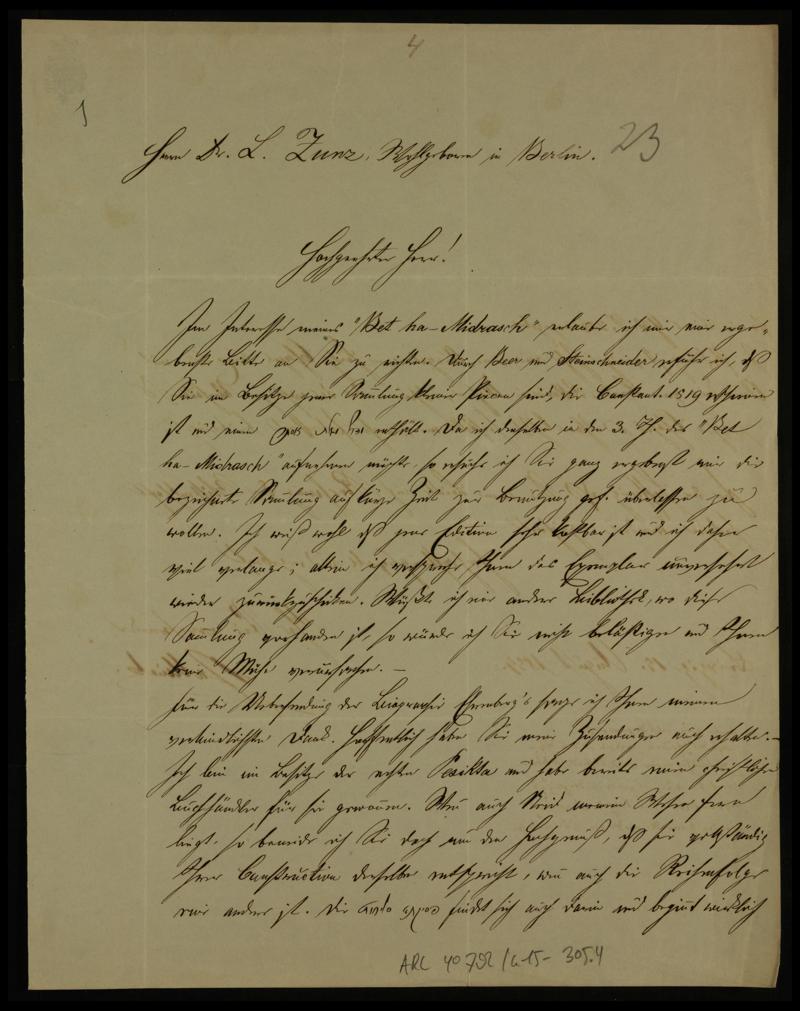 4
1
Herrn Dr. L. Zunz, Wohlgeboren in Berlin. 23
Hochgeehrter Herr!
Im Interesse meines "Bet ha-Midrasch" erlaube ich mir eine erge-
benste Bitte an Sie zu richten. Durch Beer und Steinschneider erfuhr ich, dß
Sie im Besitze jener Sammlung kleiner Piecen sind, die Constant. 1519 erschienen
ist und einen enthält. Da ich denselben in den 3. Th. des "Bet
ha-Midrasch" aufnehmen möchte, so ersuche ich Sie ganz ergebenst mir die
bezeichnete Sammlung auf kurze Zeit zur Benutzung gef. überlassen zu
wollen. Ich weiß wohl dß jene Edition sehr kostbar ist und ich daher
viel verlange; allein ich verspreche Ihnen das Exemplar unversehrt
wieder zurückzuschicken. Wüßte ich eine andere Bibliothek, wo diese
Sammlung vorhanden ist, so würde ich Sie nicht belästigen und Ihnen
keine Mühe verursachen. —
Für die Uebersendung der Biographie Ehrenberg's sage ich Ihnen meinen
verbindlichsten Dank. Hoffentlich haben Sie meine Zusendungen auch erhalten. —
Ich bin im Besitze der echten Pesikta und habe bereits einen christlichen
Buchhändler für sie gewonnen. Wenn auch Neid meinem Wesen fern
liegt, so beneide ich Sie doch um den Hochgenuß, dß sie vollständig
Ihrer Construction derselben entspricht, wenn auch die Reihenfolge
eine andere ist. Die findet sich auch darin und beginnt wirklich
ARC 4° 792 / G-15- 305.4